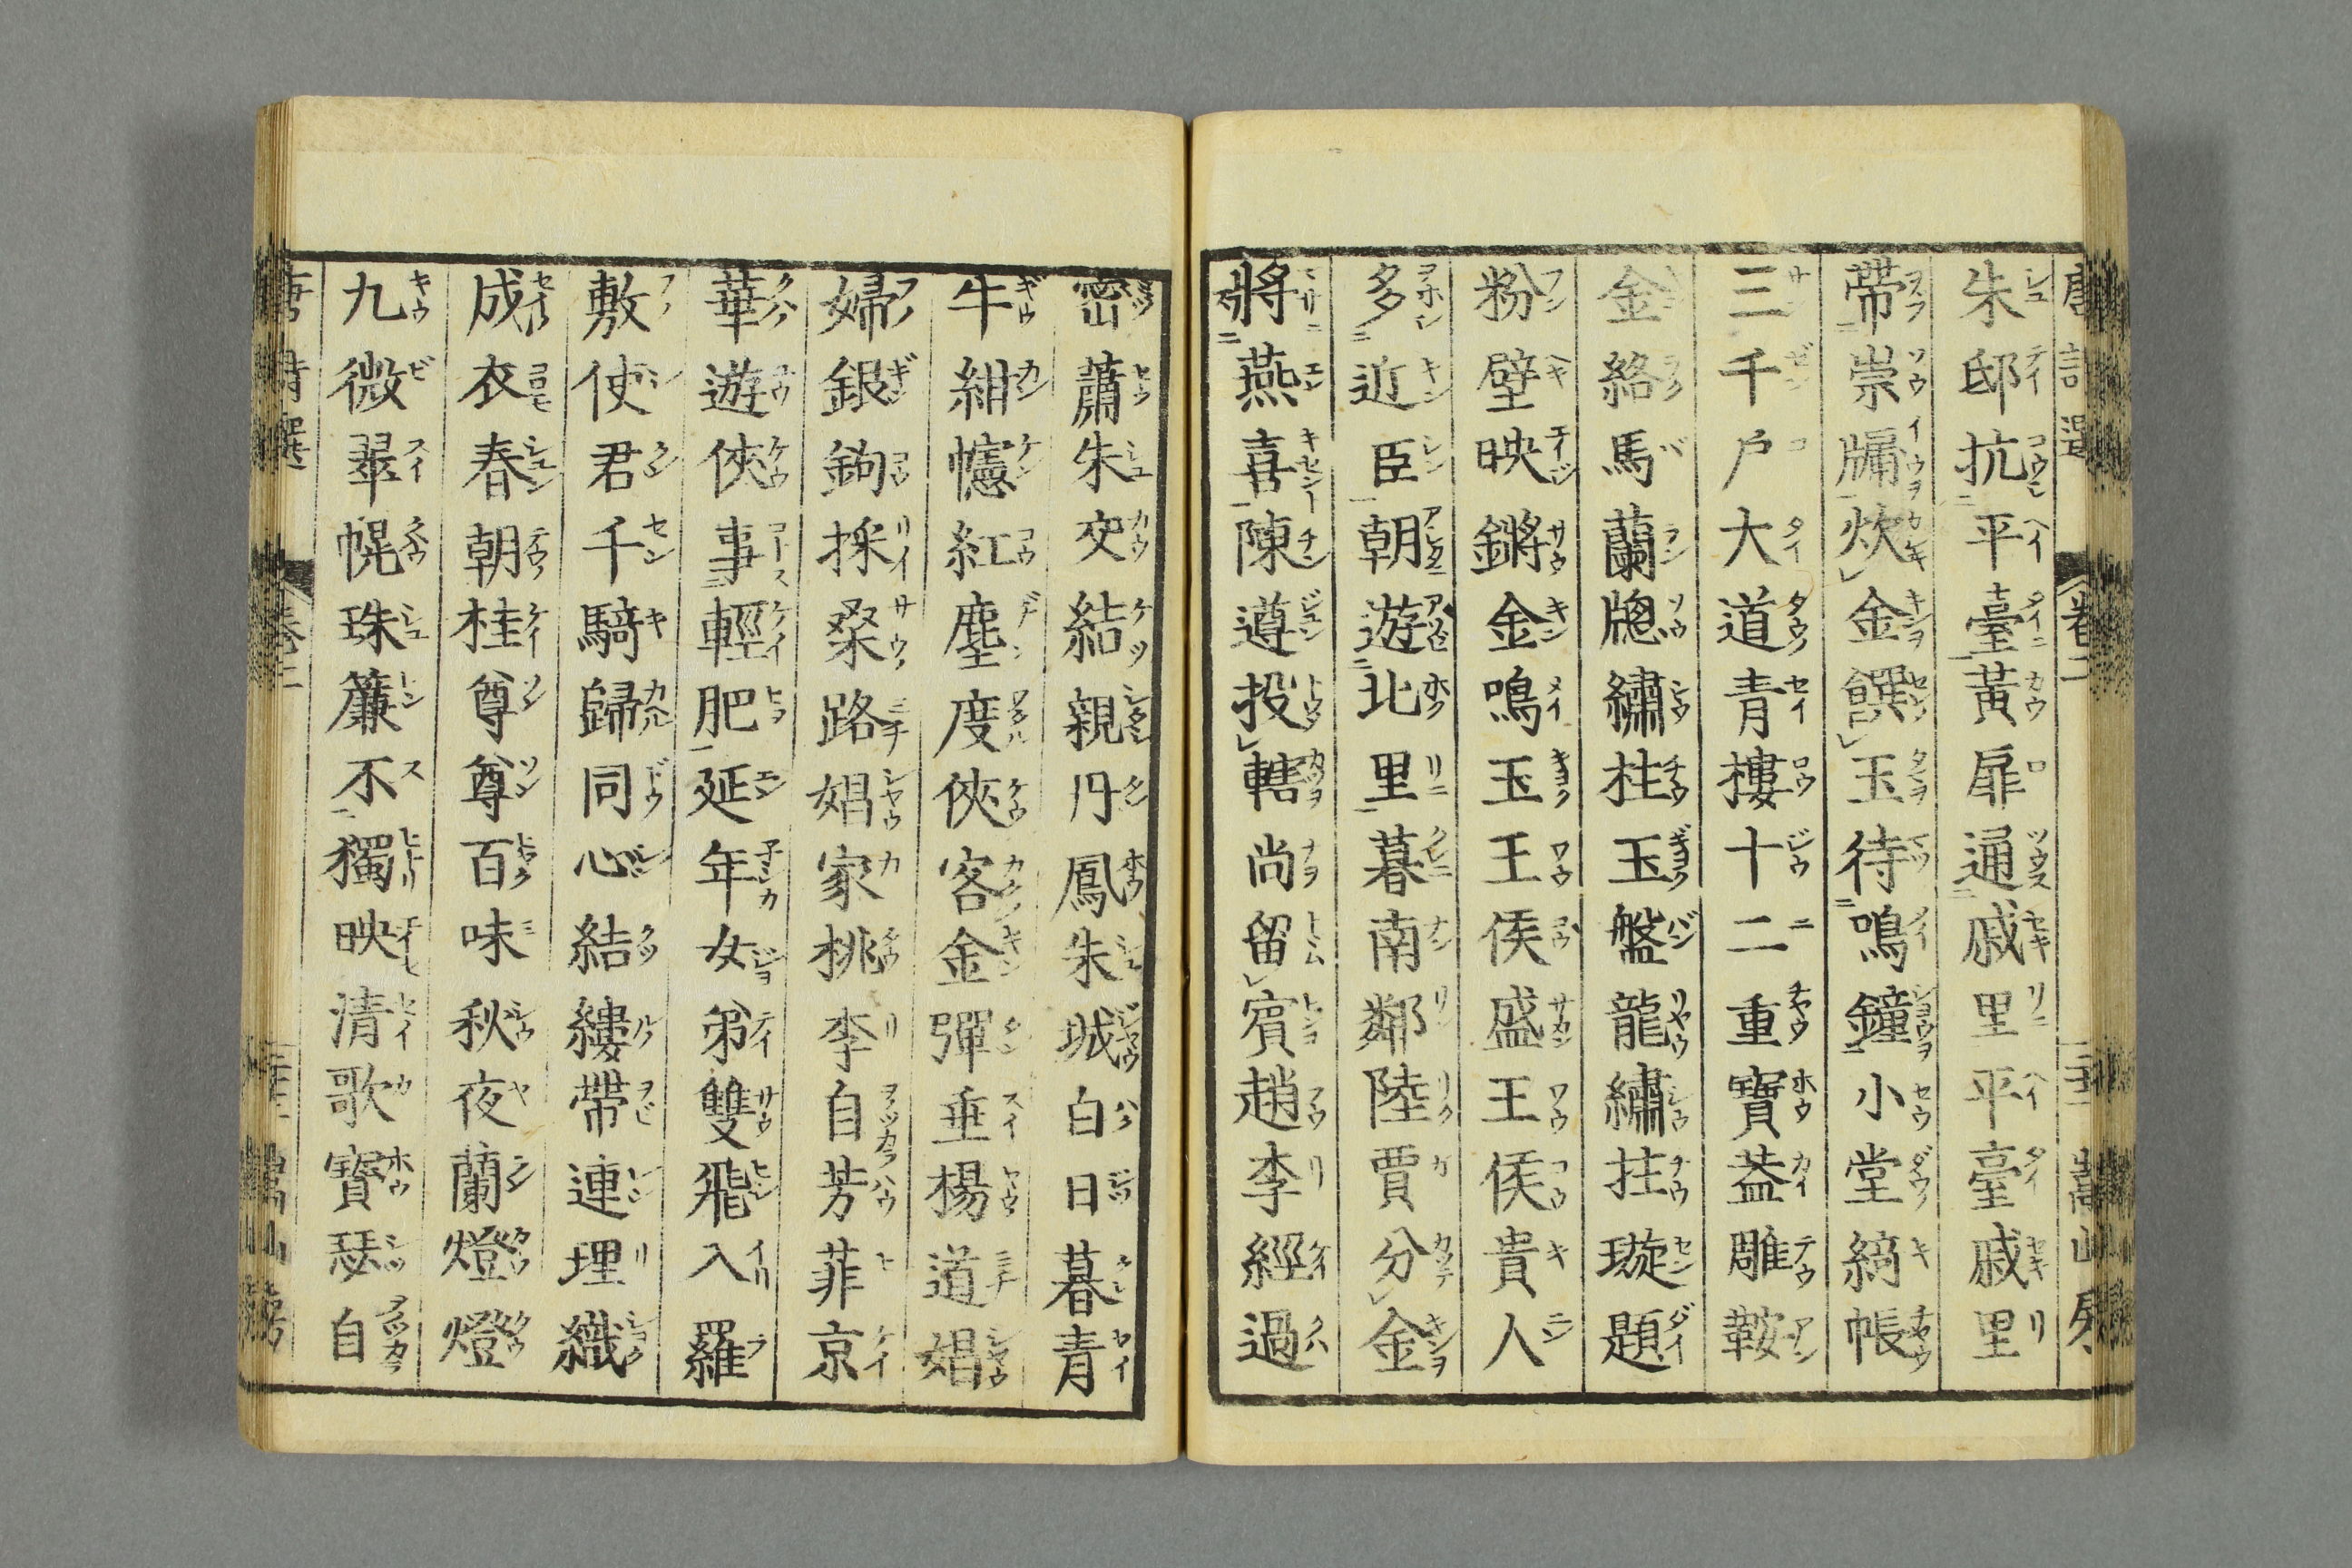 唐詩選 卷二 嵩山房
朱邸抗平臺黃扉通戚里平臺戚里
帶崇墉炊金饌玉待鳴鐘小堂綺帳
三千戶大道青樓十二重寶葢雕鞍
金絡馬蘭牕繡柱玉盤龍繡柱璇題
粉壁映鏘金鳴玉王侯盛王侯貴人
多近臣朝遊北里暮南鄰陸賈分金
將燕喜陳遵投轄尚留賓趙李經過
密蕭朱交結親丹鳳朱城白日暮青
牛紺幰紅塵度俠客金彈垂楊道娼
婦銀鉤採桑路娼家桃李自芳菲京
華遊俠事輕肥延年女弟雙飛入羅
敷使君千騎歸同心結縷帶連理織
成衣春朝桂尊尊百味秋夜蘭燈燈
九微翠幌珠簾不獨映清歌寶瑟自
唐詩選 卷二 嵩山房